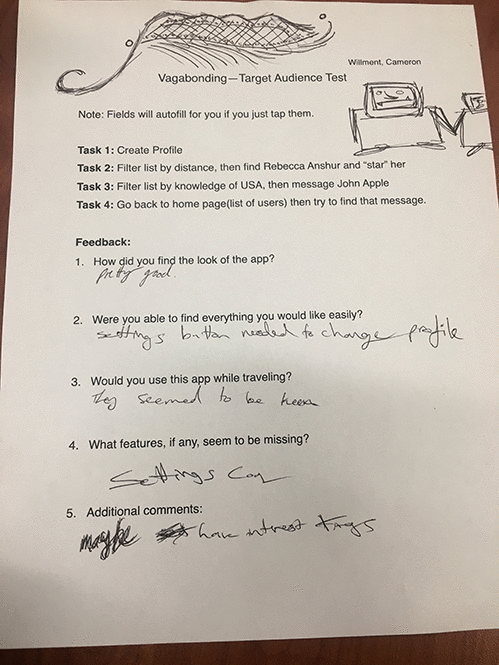 Willment, Cameron
Vagabonding—Target Audience Test
Note: Fields will autofill for you if you just tap them.
Task 1: Create Profile
Task 2: Filter list by distance, then find Rebecca Anshur and “star” her
Task 3: Filter list by knowledge of USA, then message John Apple
Task 4: Go back to home page(list of users) then try to find that message.
Feedback:
1. How did you find the look of the app?
pretty good.
2. Were you able to find everything you would like easily?
settings button needed to change profile
3. Would you use this app while traveling?
They seemed to be keen
4. What features, if any, seem to be missing?
Settings
5. Additional comments:
maybe have intrest tags